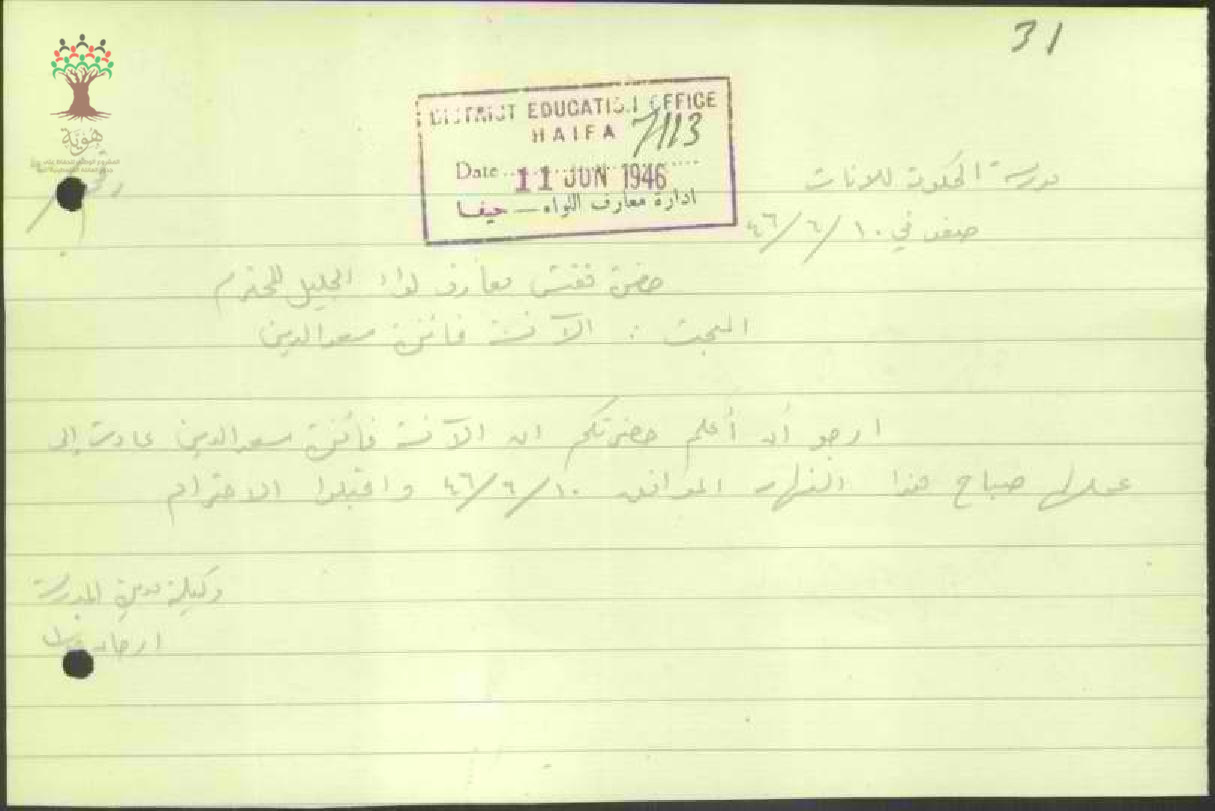 31
DISTRICT EDUCATION OFFICE
HAIFA 7/113
Date 11 JUN 1946
ادارة معارف اللواء — حيفا
هوية
مدرسة الحكومة للاناث
صفد في ١٠/٦/٤٦
حضرة مفتش معارف لواء الجليل المحترم
البحث : الآنسة فائزة سعد الدين
ارجو أن أعلم حضرتكم ان الآنسة فائزة سعد الدين عادت إلى
عملها صباح هذا النهار الموافق ١٠/٦/٤٦ واقبلوا الاحترام
وكيلة مديرة المدرسة